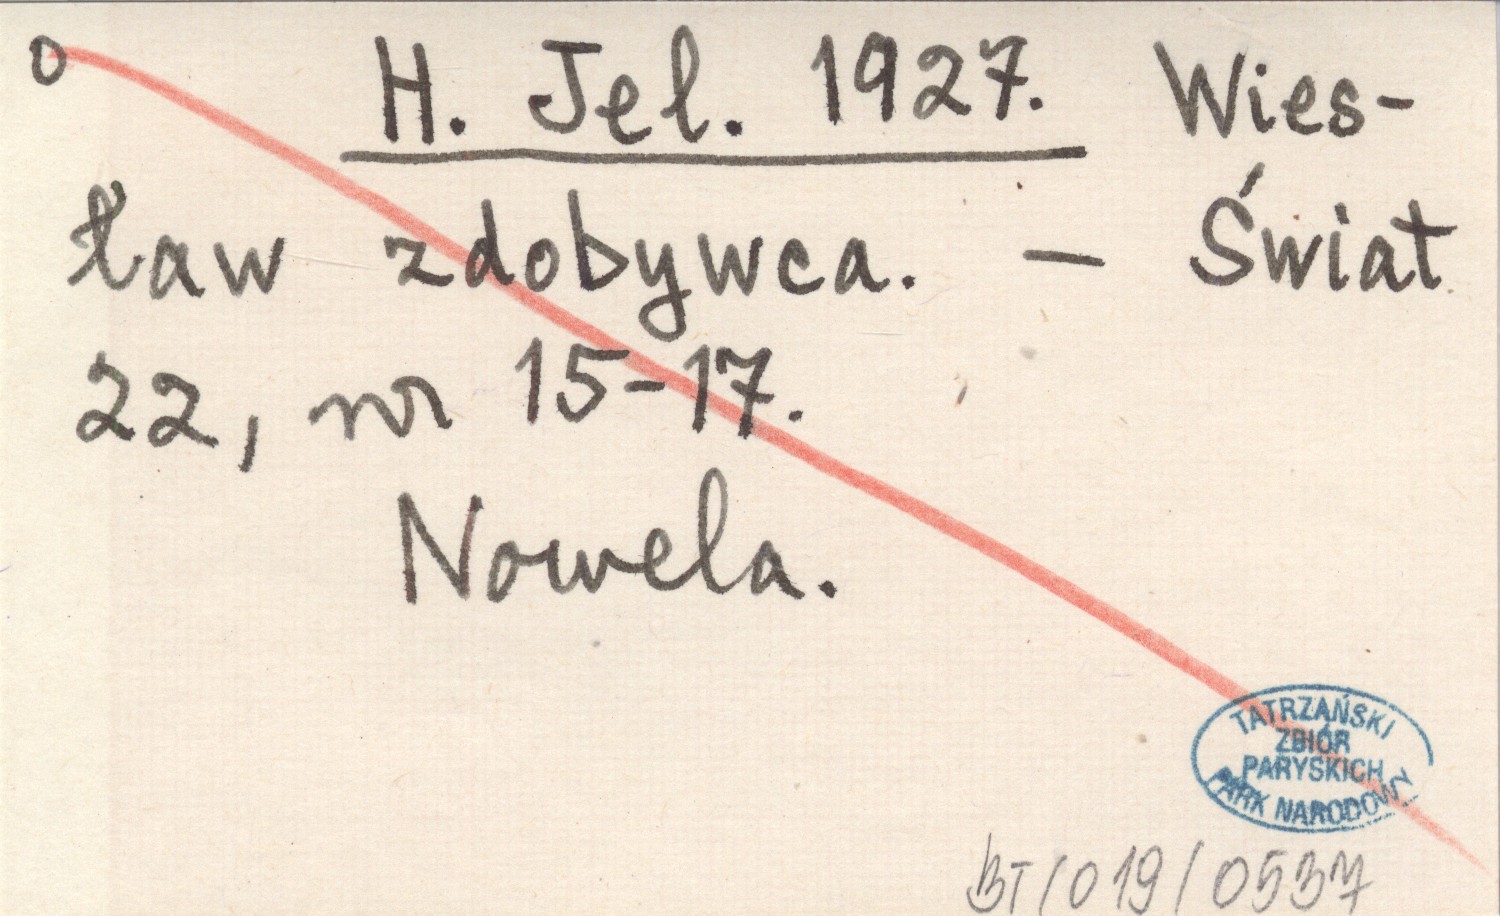 o H. Jel. 1927. Wies-
ław zdobywca. — Świat
22, nr 15-17.
Nowela.
TATRZAŃSKI
ZBIÓR
PARYSKICH
PARK NARODOWY
BT/019/0537